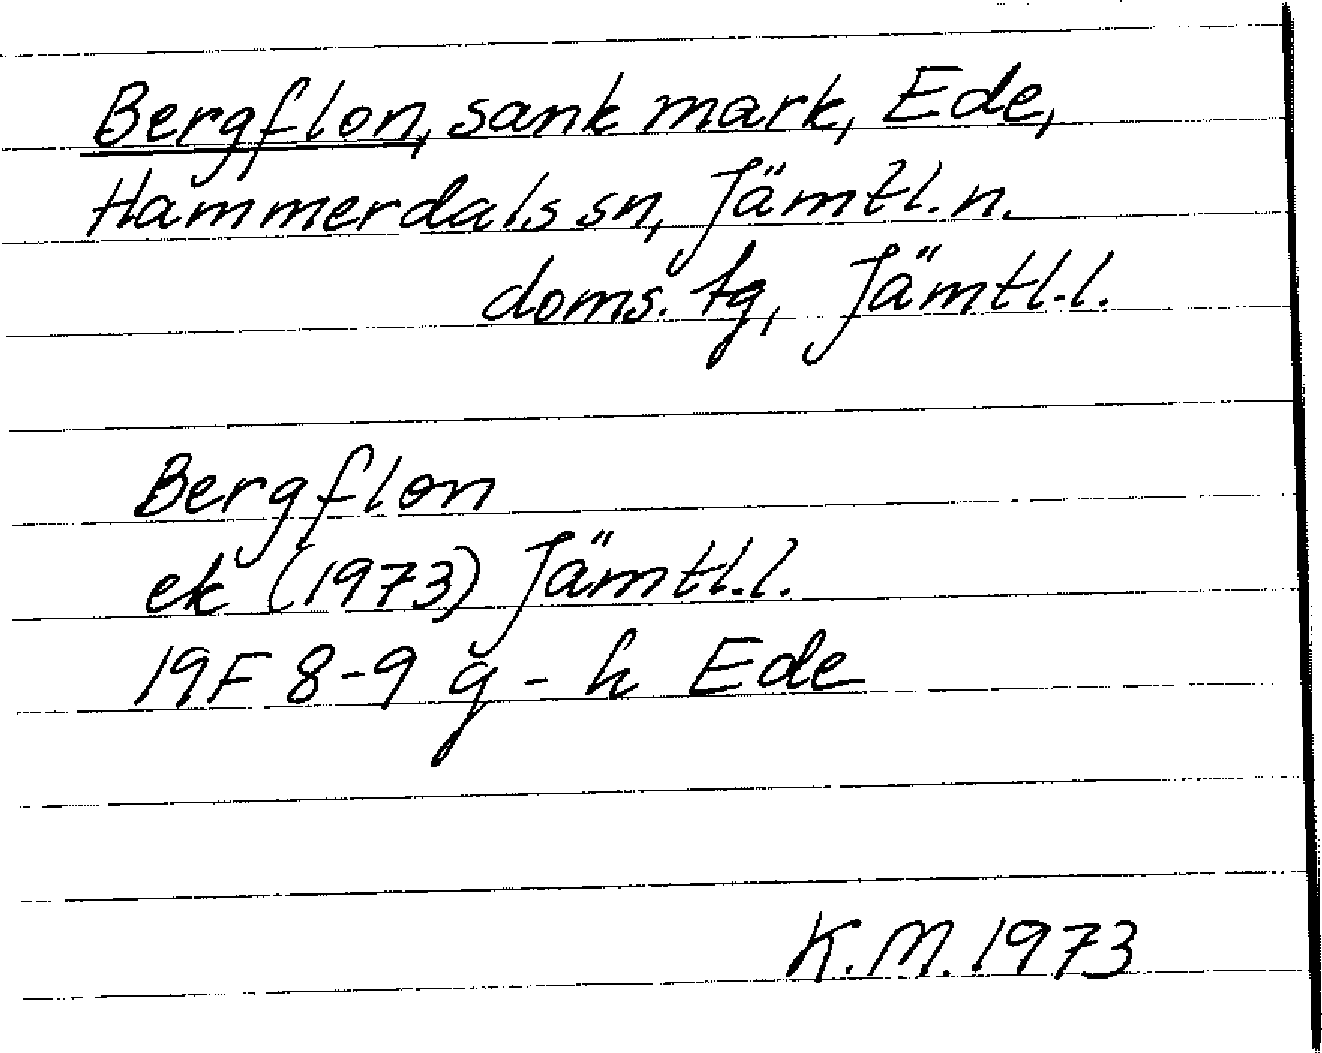 Bergflon, sank mark, Ede,
Hammerdals sn, Jämtl. n.
doms. tg, Jämtl. l.
Bergflon
ek (1973) Jämtl. l.
19F 8-9 g - h Ede
K. M. 1973